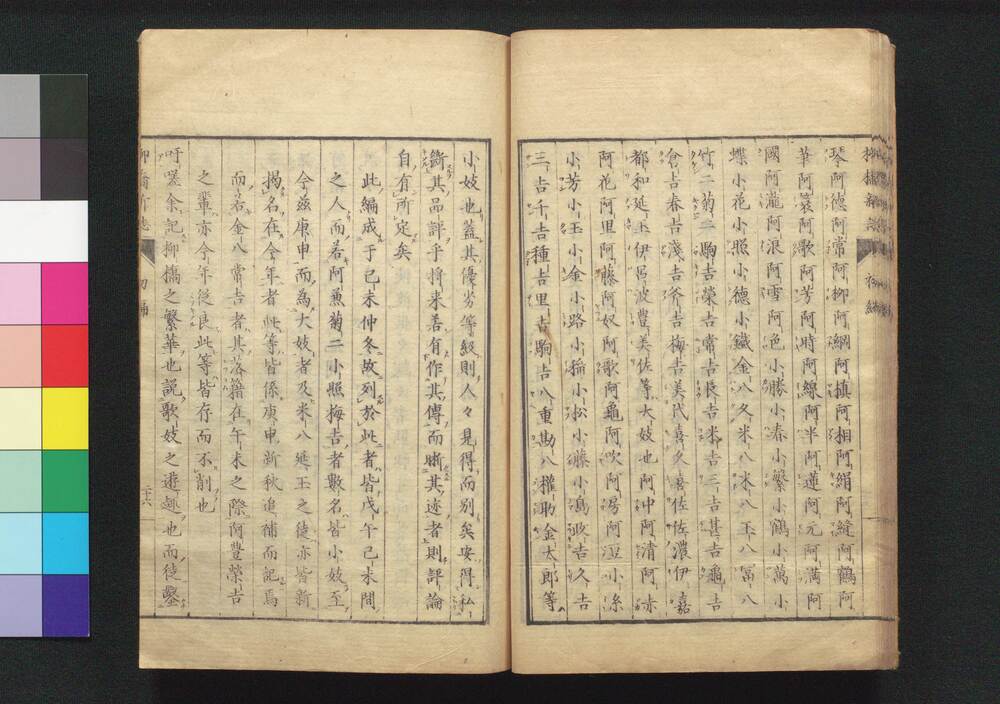 琴阿德阿常阿柳阿綱阿槙阿相阿絹阿縫阿鶴阿
華阿袋阿歌阿芳阿時阿線阿半阿蓮阿元阿満阿
國阿瀧阿浪阿雪阿色小勝小春小繁小鶴小萬小
蝶小花小照小德小鐵金八久米八米八玉八冨八
竹二菊二駒吉榮吉常吉長吉米吉三吉甚吉龜吉
倉吉春吉淺吉斧吉梅吉美代喜久喜佐佐濃伊嘉
都和延玉伊呂波豊美佐等大妓也阿仲阿清阿赤
阿花阿里阿藤阿奴阿歌阿龜阿吹阿陽阿豆小糸
小芳小玉小金小路小稲小松小藤小嶋政吉久吉
三吉千吉種吉里吉駒吉八重勘八權助金太郎等
小妓也蓋其優劣等級則人々見得而別矣安得私
斷其品評乎将来若有作其傳而晰其迹者則評論
自有所定矣
此編成于己未仲冬故列於此者皆戊午己未間
之人而若阿兼菊二小照梅吉者數名皆小妓至
今茲庚申而爲大妓者及米八延玉之徒亦皆新
掲名在今年者此等皆係庚申新秋追補而記焉
而若金八常吉者其落籍在午未之際阿豐榮吉
之輩亦今年從良此等皆存而不削也
吁嗟余記柳橋之繁華也說歌妓之遊趣也而徒鑿
柳橋新誌
初編
二十六